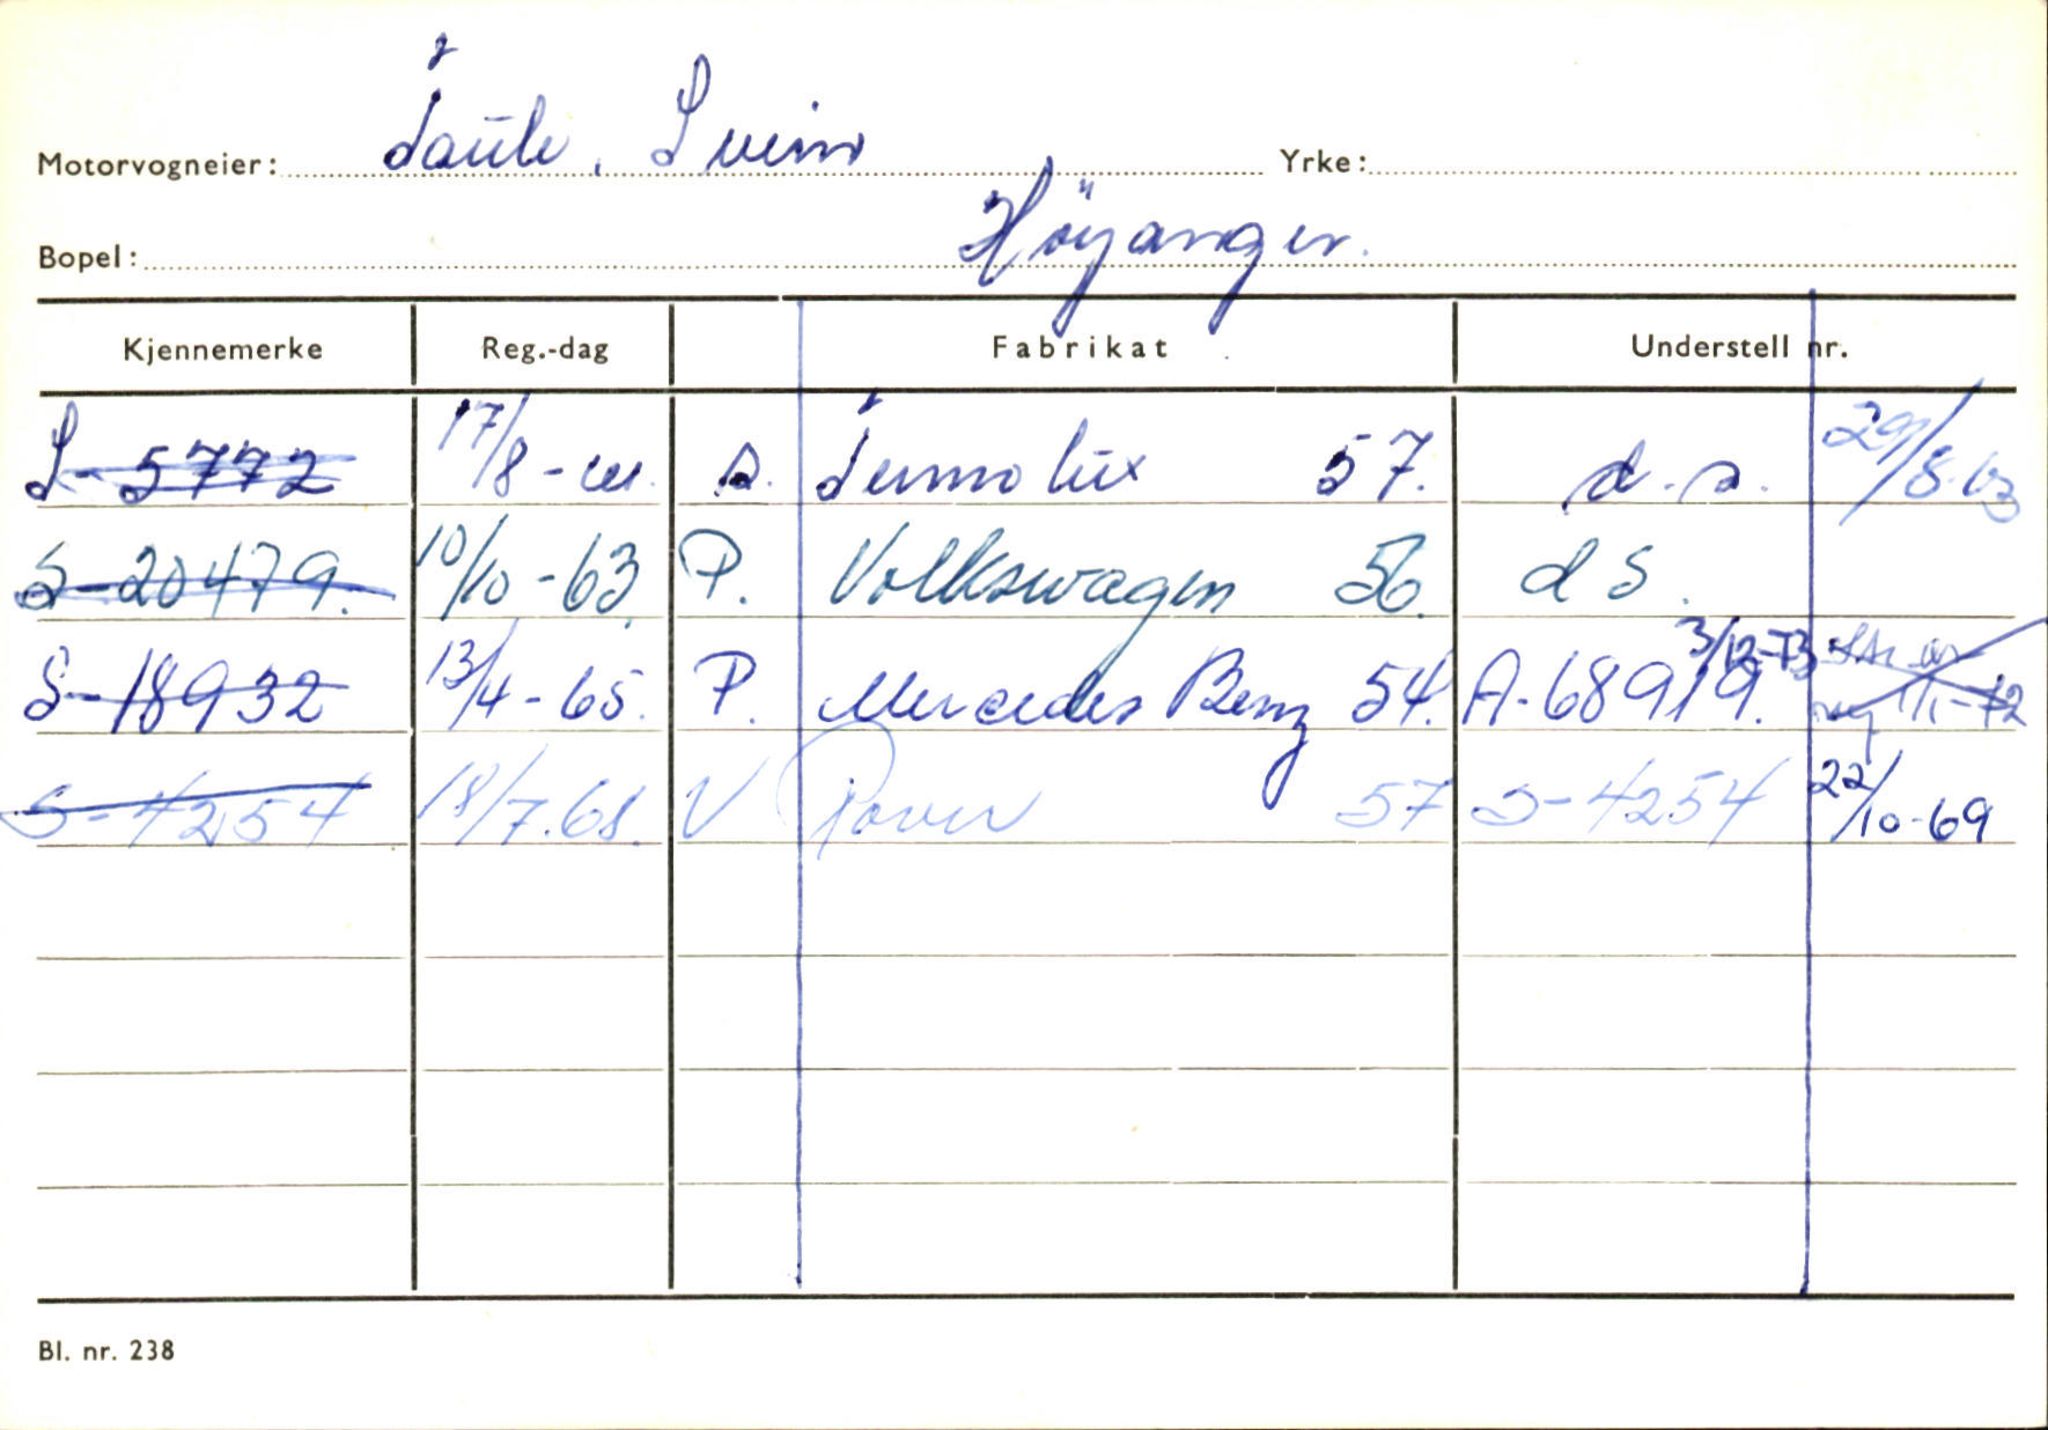 Motorvogneier: Taule, Svein Yrke:
Bopel: Höyanger.
Kjennemerke Reg.-dag Fabrikat Understell nr.
S-5772 17/8- s. Tempo lux 57. d.s. 29/8-63
S-20479. 10/10-63. P. Volkswagen 56. d S.
S-18932 13/4-65. P. Mercedes Benz 54. A-68919. 3/12-73 1/1-72
S-4254 18/7.68. V Rover 57 S-4254 22/10-69
Bl. nr. 238